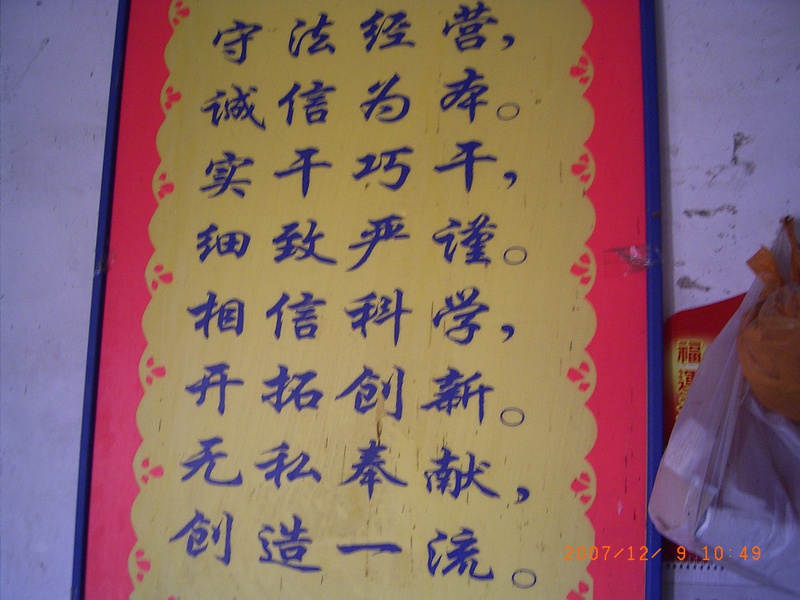 守法经营，
诚信为本。
实干巧干，
细致严谨。
相信科学，
开拓创新。
无私奉献，
创造一流。
福
運
2007/12/ 9 10:49